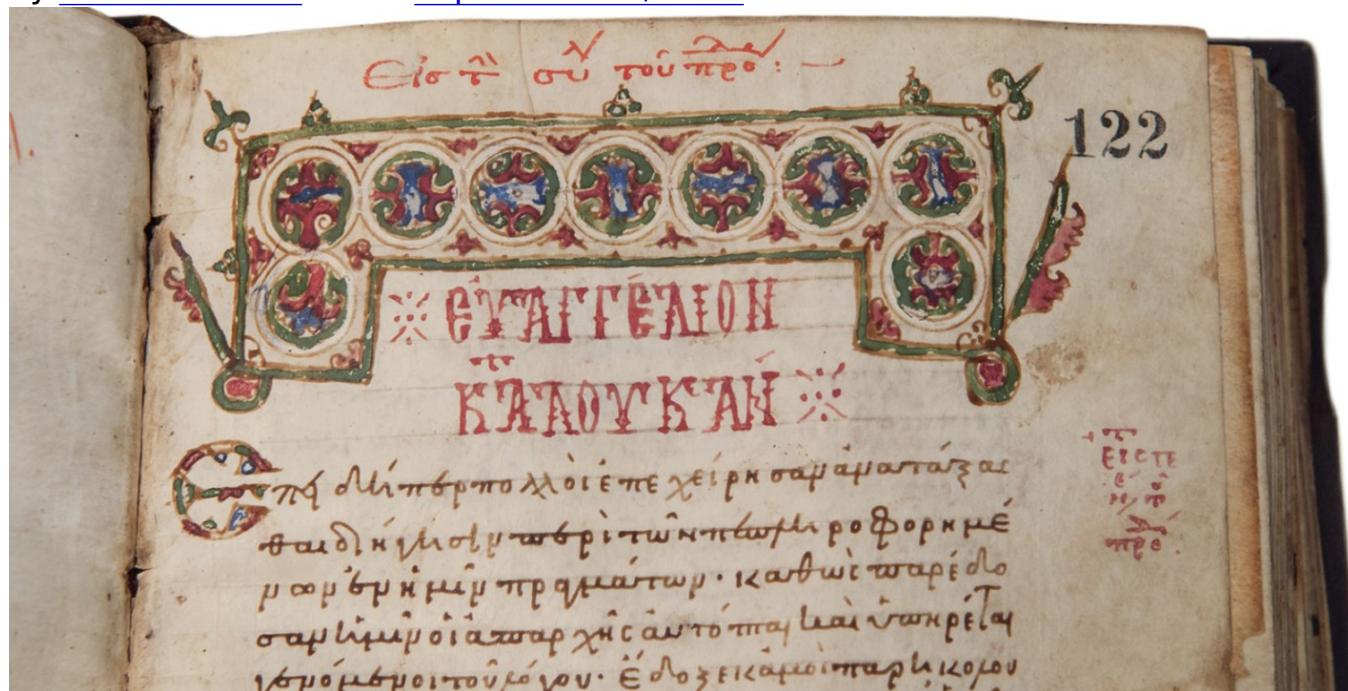 Εἰς τ συ τοῦ προ :
122
ΕΥΑΓΓΕΛΙΟΝ
ΚΑΤΑ ΛΟΥΚΑΝ
Ἐπειδήπερ πολλοὶ ἐπεχείρησαν ἀνατάξασ
θαι διήγησιν περὶ τῶν πεπληροφορημέ
νων ἐν ἡμῖν πραγμάτων · καθὼς παρέδο
σαν ἡμῖν οἱ ἀπαρχῆς αὐτόπται καὶ ὑπηρέται
γενόμενοι τοῦ λόγου · Ἔδοξε κἀμοὶ παρηκολου